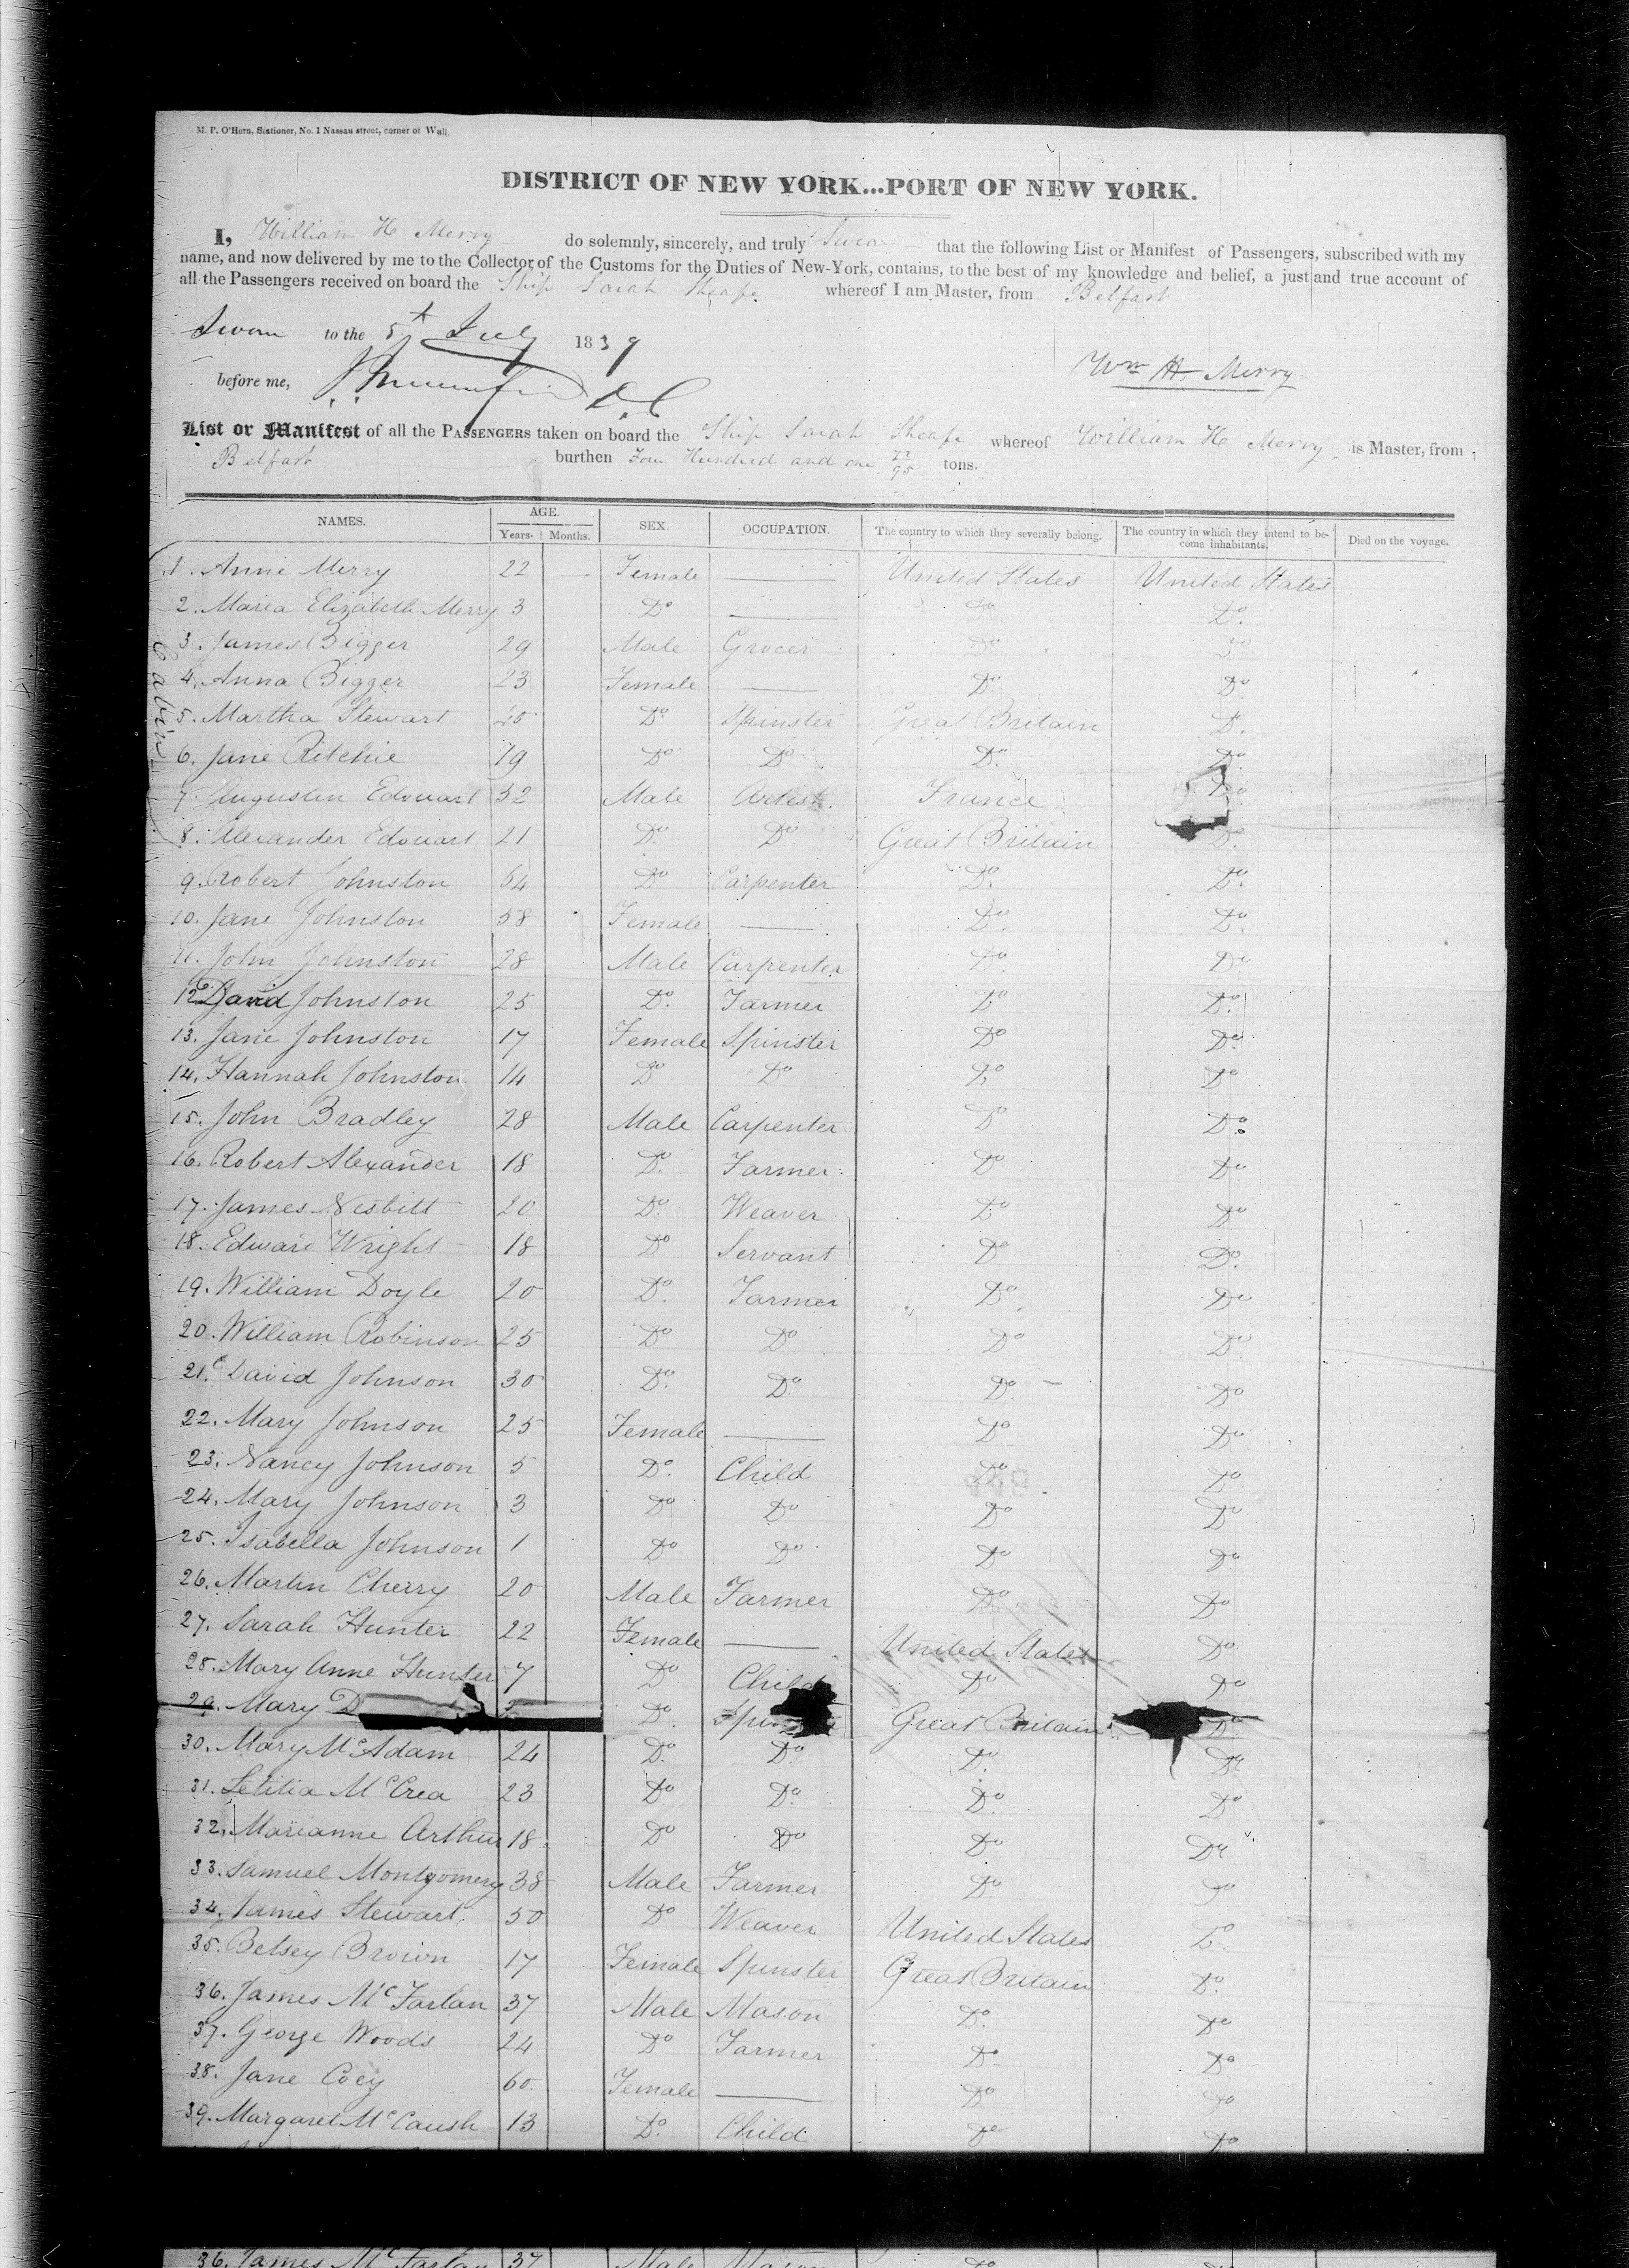 M. P. O'Hern, Stationer, No. 1 Nassau street, corner of Wall.
DISTRICT OF NEW YORK...PORT OF NEW YORK.
I, William H Merry do solemnly, sincerely, and truly Swear that the following List or Manifest of Passengers, subscribed with my
name, and now delivered by me to the Collector of the Customs for the Duties of New-York, contains, to the best of my knowledge and belief, a just and true account of
all the Passengers received on board the Ship Sarah Sheafe whereof I am Master, from Belfast
Sworn to the 5th July 1839
Wm H. Merry
before me, D.C
List or Manifest of all the PASSENGERS taken on board the Ship Sarah Sheafe whereof William H Merry is Master, from
Belfast burthen Four Hundred and one 72/95 tons.
NAMES. AGE. SEX. OCCUPATION. The country to which they severally belong. The country in which they intend to become inhabitants. Died on the voyage.
Years. Months.
Cabin
1. Anne Merry 22 — Female — United States United States
2. Maria Elizabeth Merry 3 Do — Do Do.
3. James Bigger 29 Male Grocer Do Do
4. Anna Bigger 23 Female — Do Do
5. Martha Stewart 45 Do Spinster Great Britain Do.
6. Jane Ritchie 19 Do Do Do. Do.
7. Augustin Edouart 52 Male Artist. France Do.
8. Alexander Edouart 21 Do. Do Great Britain Do.
9. Robert Johnston 54 Do Carpenter Do. Do.
10. Jane Johnston 58 Female — Do. Do.
11. John Johnston 28 Male Carpenter Do. Do
12. David Johnston 25 Do. Farmer Do Do.
13. Jane Johnston 17 Female Spinster Do Do
14. Hannah Johnston 14 Do Do Do Do
15. John Bradley 28 Male Carpenter Do Do.
16. Robert Alexander 18 Do. Farmer. Do Do
17. James Nesbitt 20 Do. Weaver Do Do
18. Edward Wright 18 Do Servant Do Do.
19. William Doyle 20 Do. Farmer Do. Do
20. William Robinson 25 Do Do Do Do.
21. David Johnson 30 Do. Do. Do. Do
22. Mary Johnson 25 Female — Do Do
23. Nancy Johnson 5 Do. Child Do. Do
24. Mary Johnson 3 Do Do Do Do
25. Isabella Johnson 1 Do Do Do Do
26. Martin Cherry 20 Male Farmer Do. Do
27. Sarah Hunter 22 Female — United States Do.
28. Mary Anne Hunter 7 Do Child Do Do
29. Mary D Do. Great Britain Do
30. Mary McAdam 24 Do. Do. Do. Do
31. Letitia McCrea 23 Do Do. Do. Do
32. Marianne Arthur 18 Do Do Do Do
33. Samuel Montgomery 38 Male Farmer Do Do
34. James Stewart 50 Do Weaver United States Do.
35. Betsey Brown 17 Female Spinster Great Britain Do.
36. James McFarlan 37 Male Mason Do. Do
37. George Woods 24 Do Farmer Do Do
38. Jane Coey 60. Female — Do Do
39. Margaret McCaush 13 Do. Child Do Do
36. James McFarlan 37 Male Mason Do